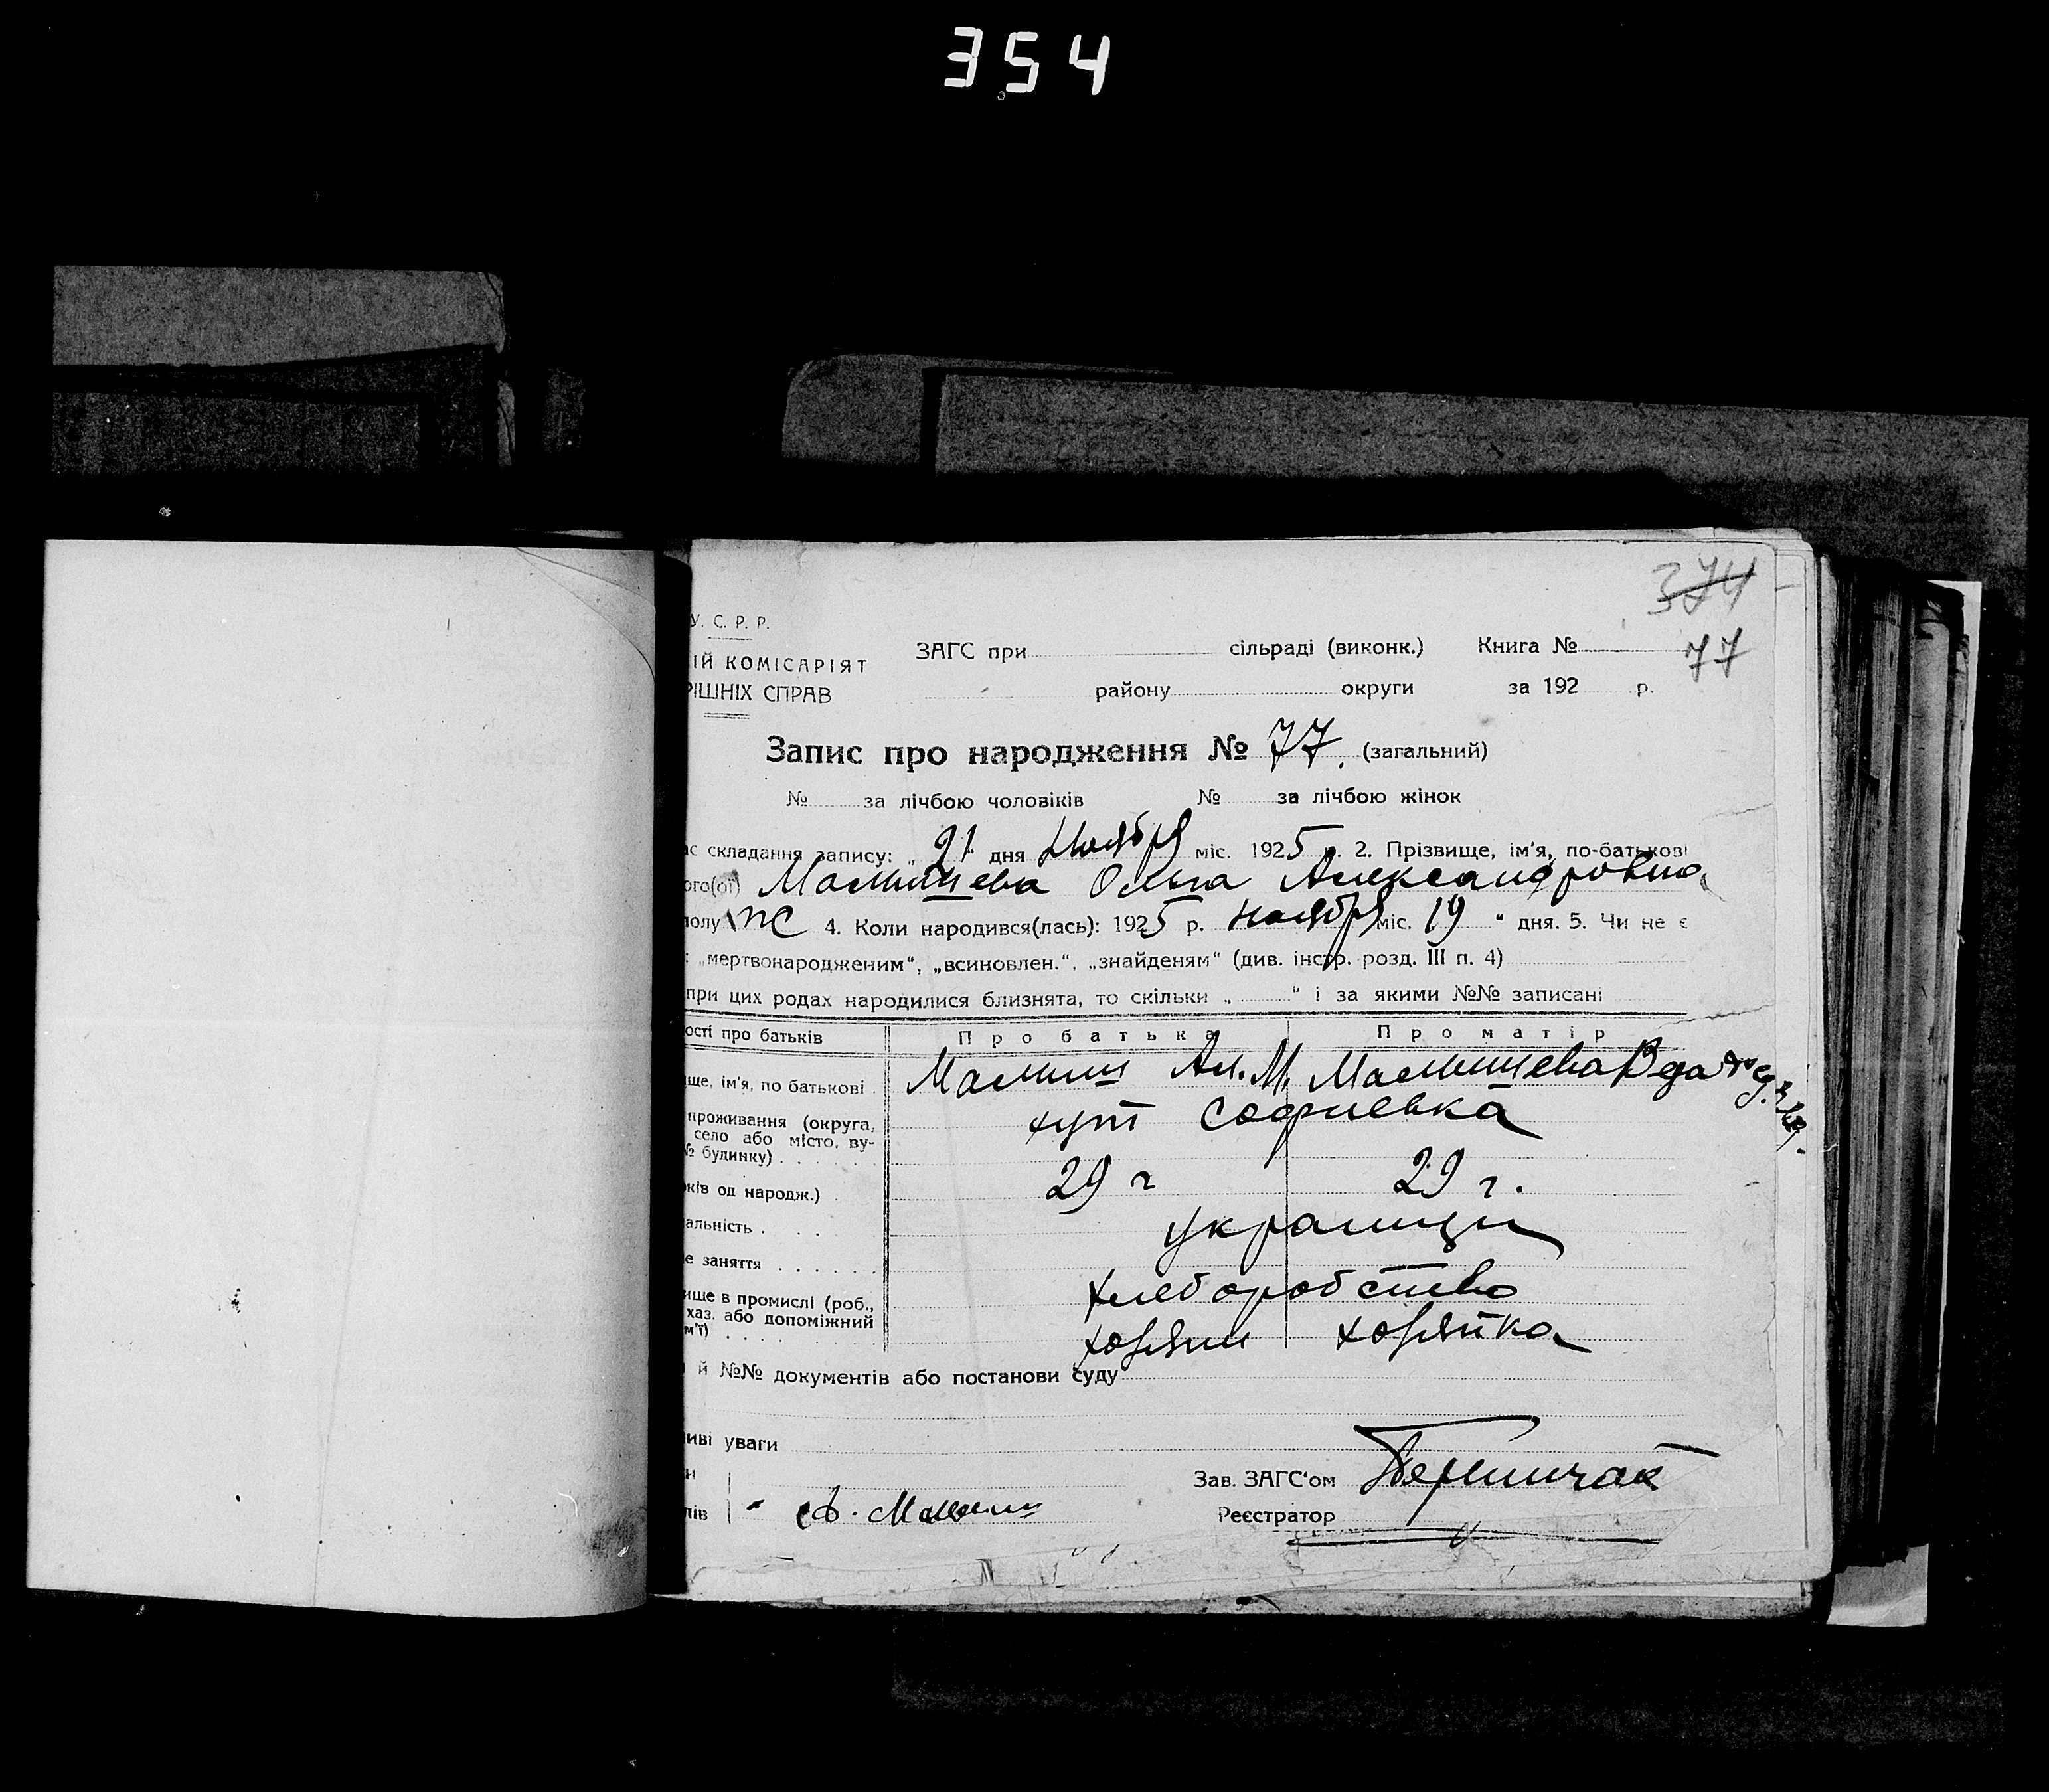 354
374
77
У. С. Р. Р.
ІЙ КОМІСАРІЯТ
РІШНІХ СПРАВ
ЗАГС при сільраді (виконк.) Книга №
району округи за 192 р.
Запис про народження № 77. (загальний)
№ за лічбою чоловіків № за лічбою жінок
ас складання запису: „ 21 " дня Ноября міс. 1925 р. 2. Прізвище, ім'я, по-батькові
ого(ої) Ольга Александровна
полу ж 4. Коли народився(лась): 1925 р. ноября міс. 19 " дня. 5. Чи не є
: „мертвонародженим", „всиновлен.", „знайденям" (див. інстр. розд. III п. 4)
при цих родах народилися близнята, то скільки „ " і за якими №№ записані
ості про батьків Про батька Про матір
ще, ім'я, по батькові Ал. М.
проживання (округа,
село або місто, ву-
№ будинку) хут Софиевка
ків од народж.) 29 г 29 г.
альність украинцы
е заняття хлеборобство
ище в промислі (роб.,
хаз. або допоміжний
м'ї) хозяин хозяйка
й №№ документів або постанови суду
иві уваги
Зав. ЗАГС'ом
лів Реєстратор